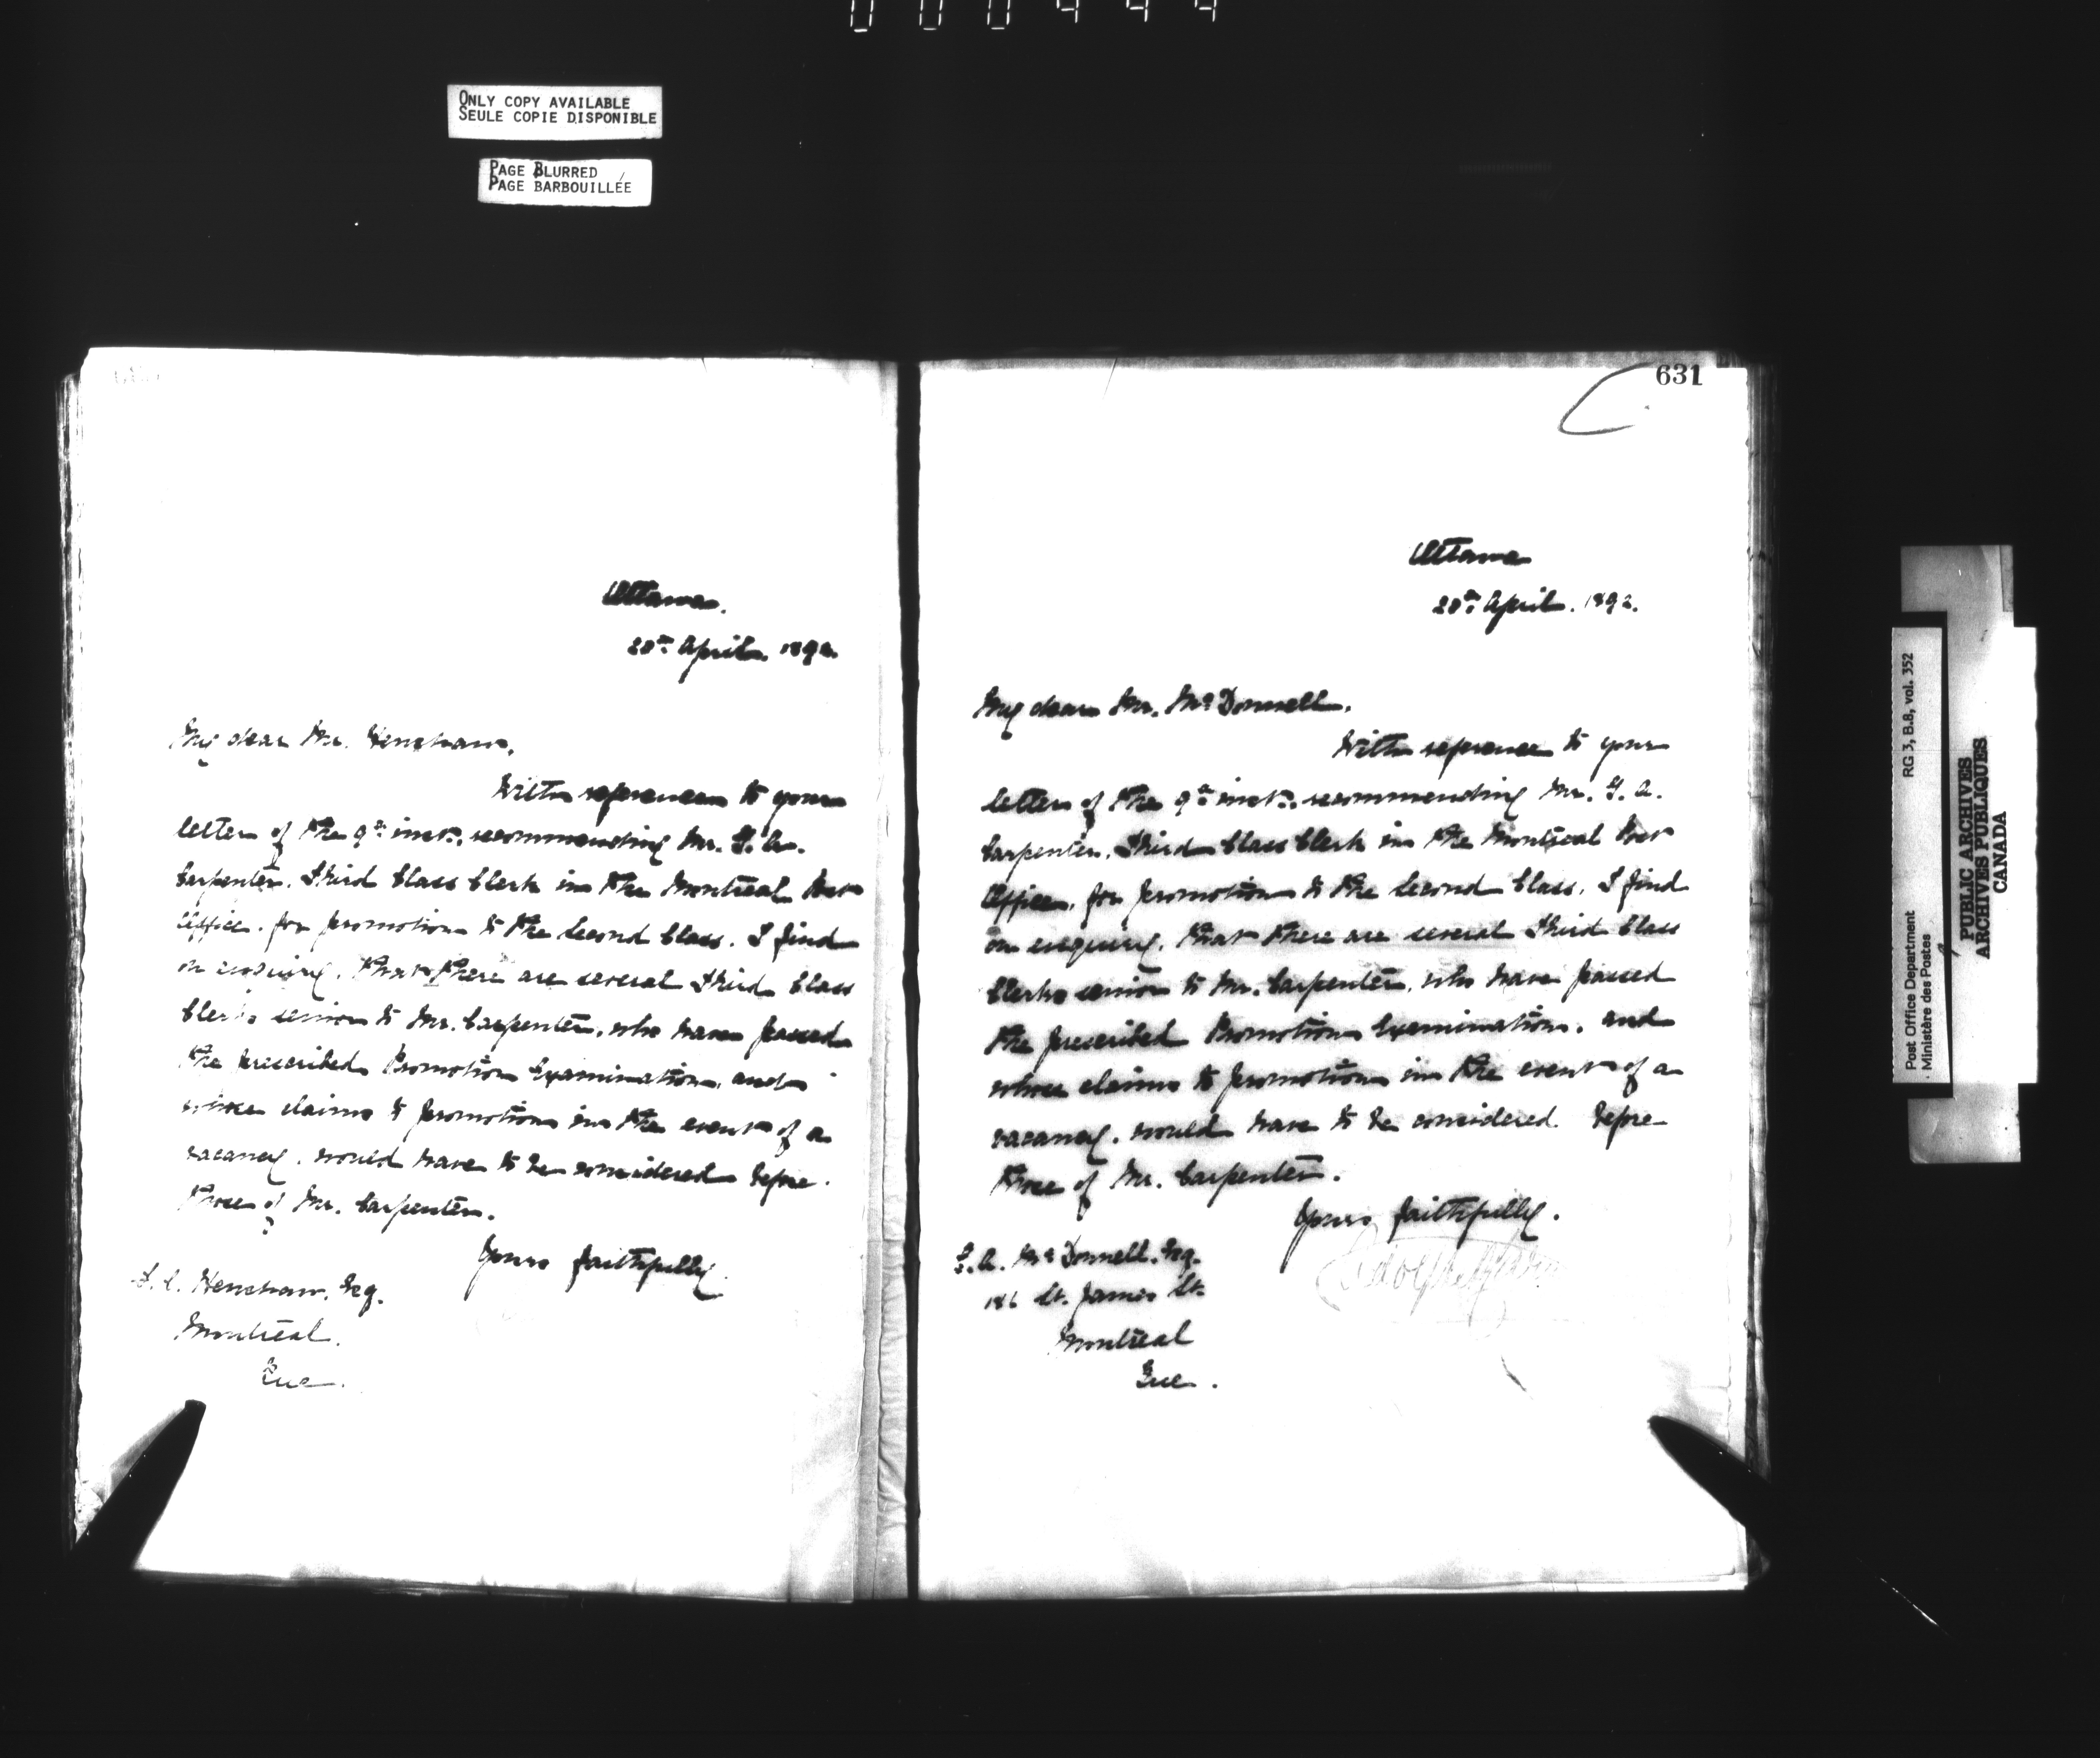 ONLY COPY AVAILABLE
SEULE COPIE DISPONIBLE
PAGE BLURRED
PAGE BARBOUILLÉE
Ottawa.
20th April. 1892.
My dear Mr. Henshaw,
With reference to your
letter of the 9th inst. recommending Mr. G. A.
Carpenter, Third Class Clerk in the Montreal Post
Office, for promotion to the Second Class, I find
on enquiry, that there are several Third Class
Clerks senior to Mr. Carpenter, who have passed
the prescribed Promotion Examination, and
whose claims to promotion in the event of a
vacancy, would have to be considered before
those of Mr. Carpenter.
Yours faithfully
Henshaw, Esq.
Montreal.
Que.
631
Ottawa
20th April. 1892.
My dear Mr. McDonnell,
With reference to your
letter of the 9th inst. recommending Mr. G. A.
Carpenter, Third Class Clerk in the Montreal Post
Office, for promotion to the Second Class, I find
on enquiry, that there are several Third Class
Clerks senior to Mr. Carpenter, who have passed
the prescribed Promotion Examination, and
whose claims to promotion in the event of a
vacancy, would have to be considered before
those of Mr. Carpenter.
Yours faithfully.
McDonnell, Esq.
186 St. James St.
Montreal
Que.
Post Office Department RG 3, B.8, vol. 352
Ministère des Postes
PUBLIC ARCHIVES
ARCHIVES PUBLIQUES
CANADA